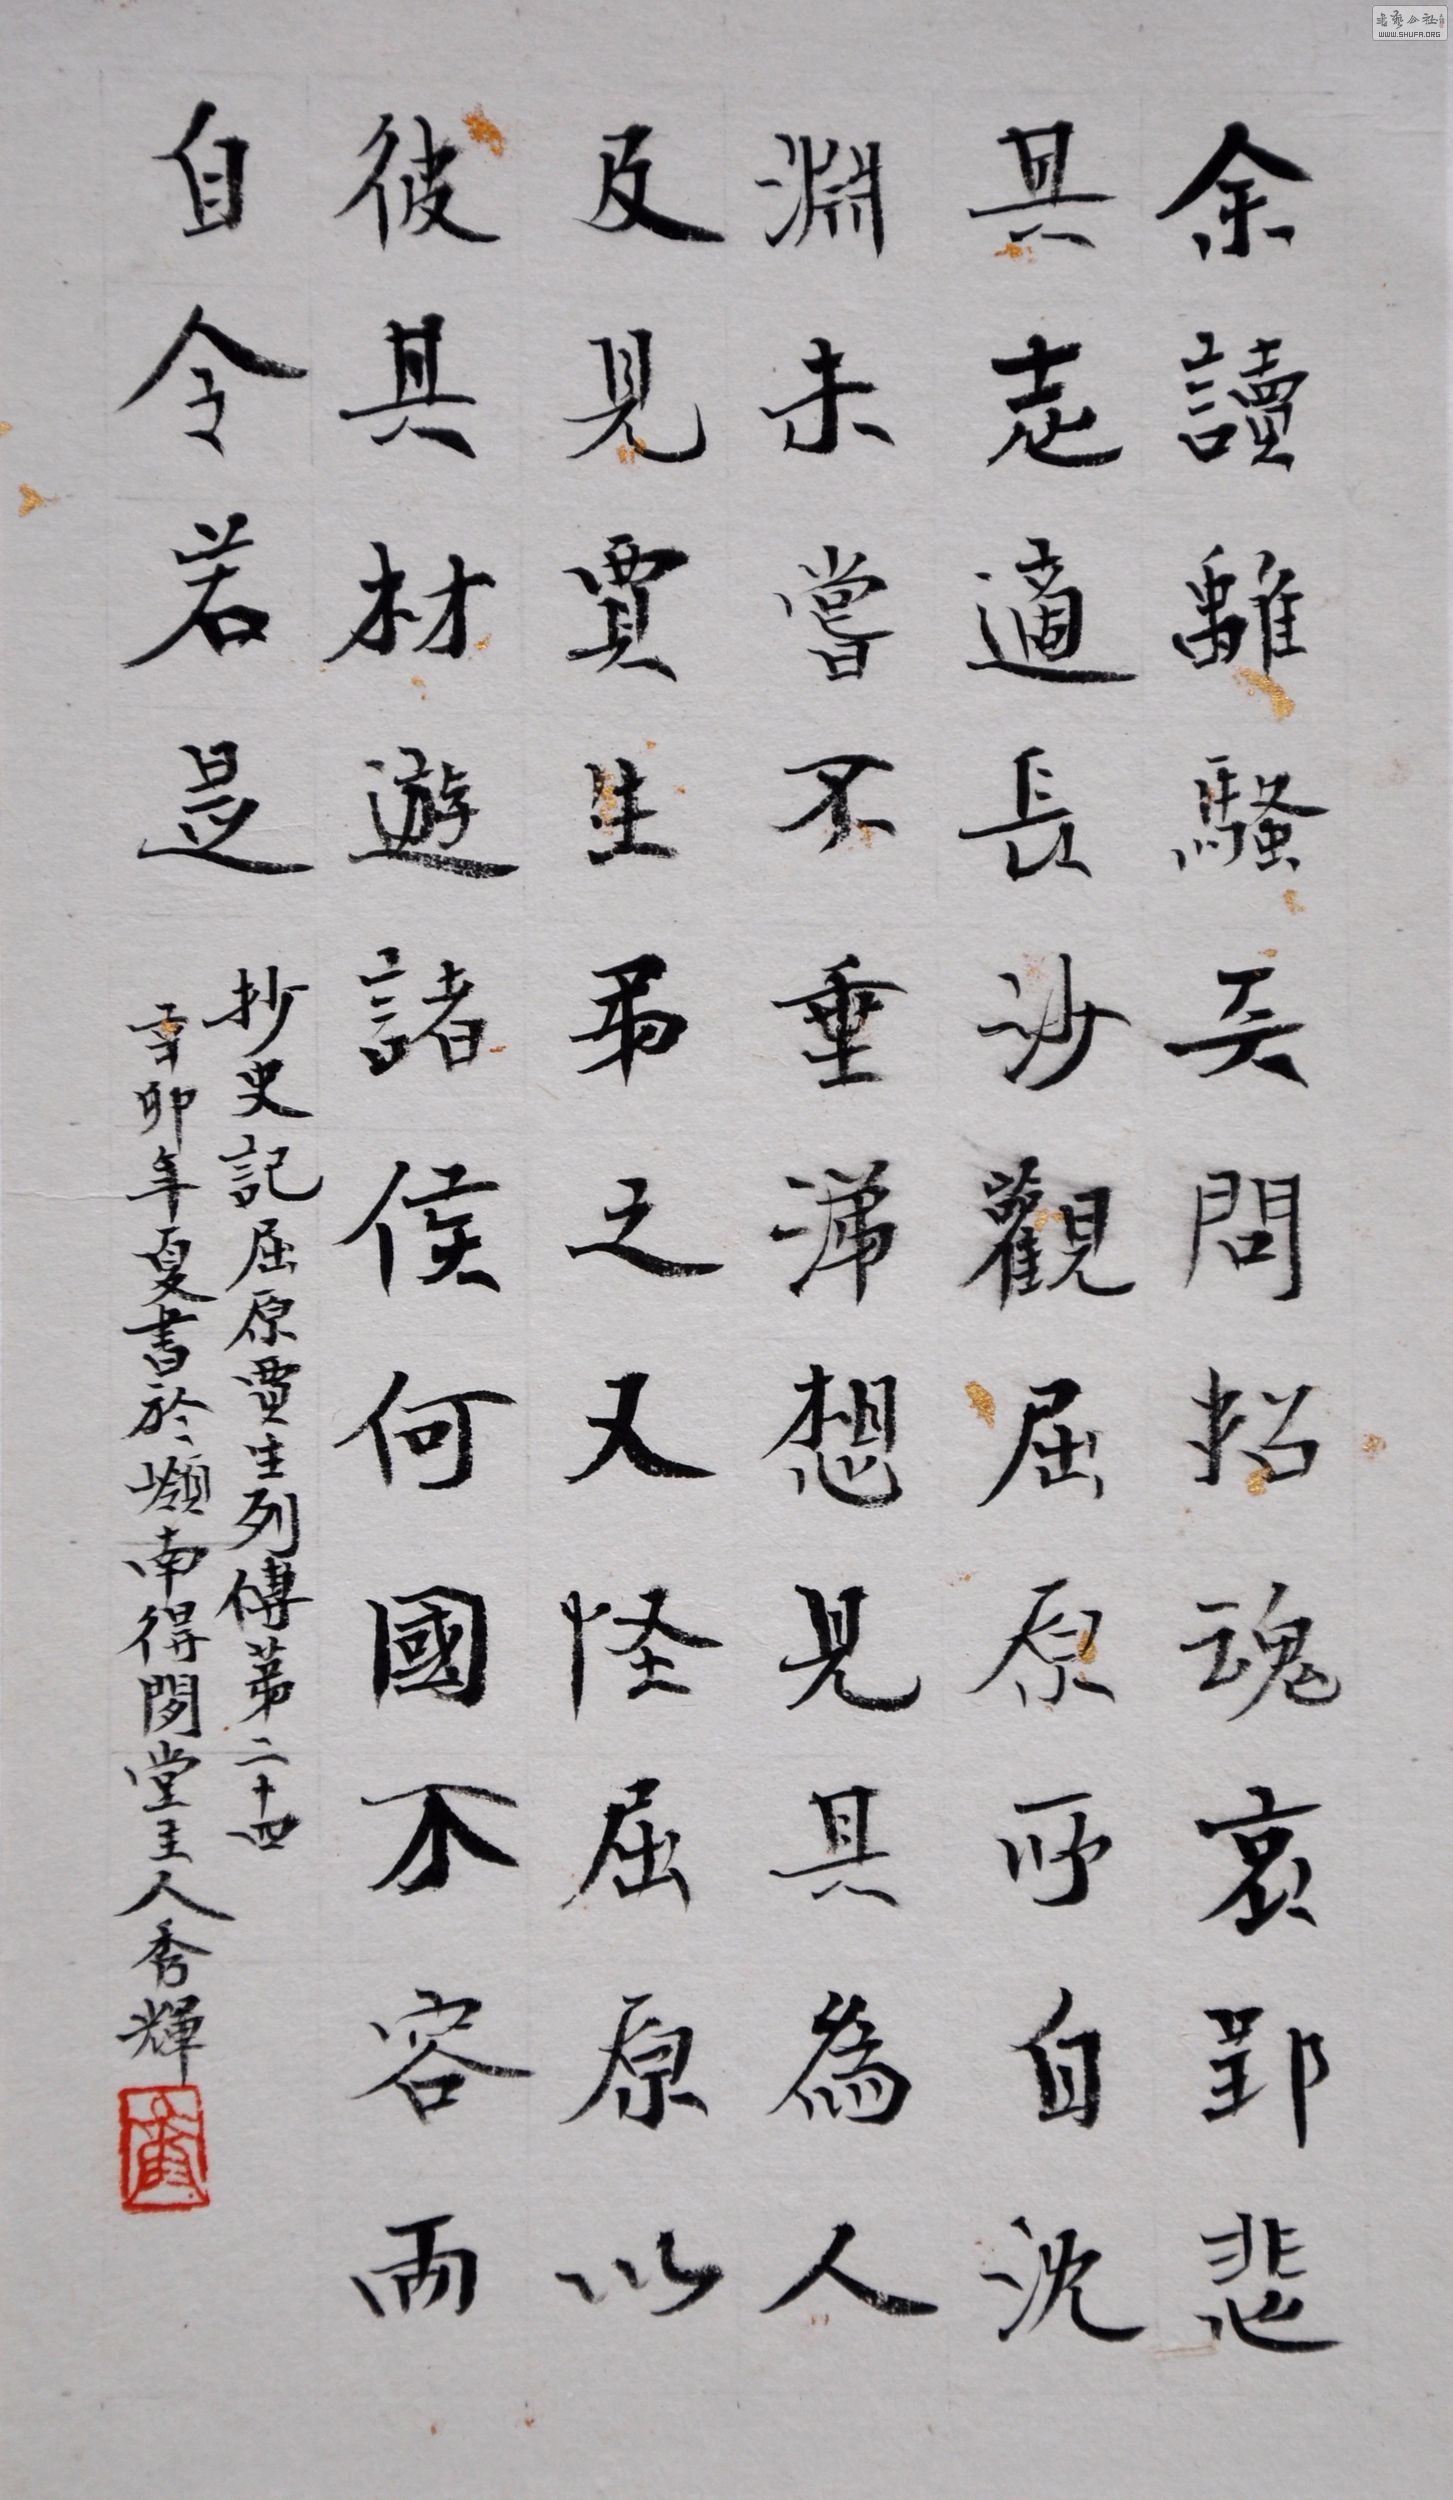 余讀離騷天問招魂哀郢悲
其志適長沙觀屈原所自沈
淵未嘗不垂涕想見其為人
及見賈生弔之又怪屈原以
彼其材遊諸侯何國不容而
自令若是
抄史記屈原賈生列傳第二十四
辛卯年夏書於嶺南得閒堂主人秀輝
WWW.SHUFA.ORG